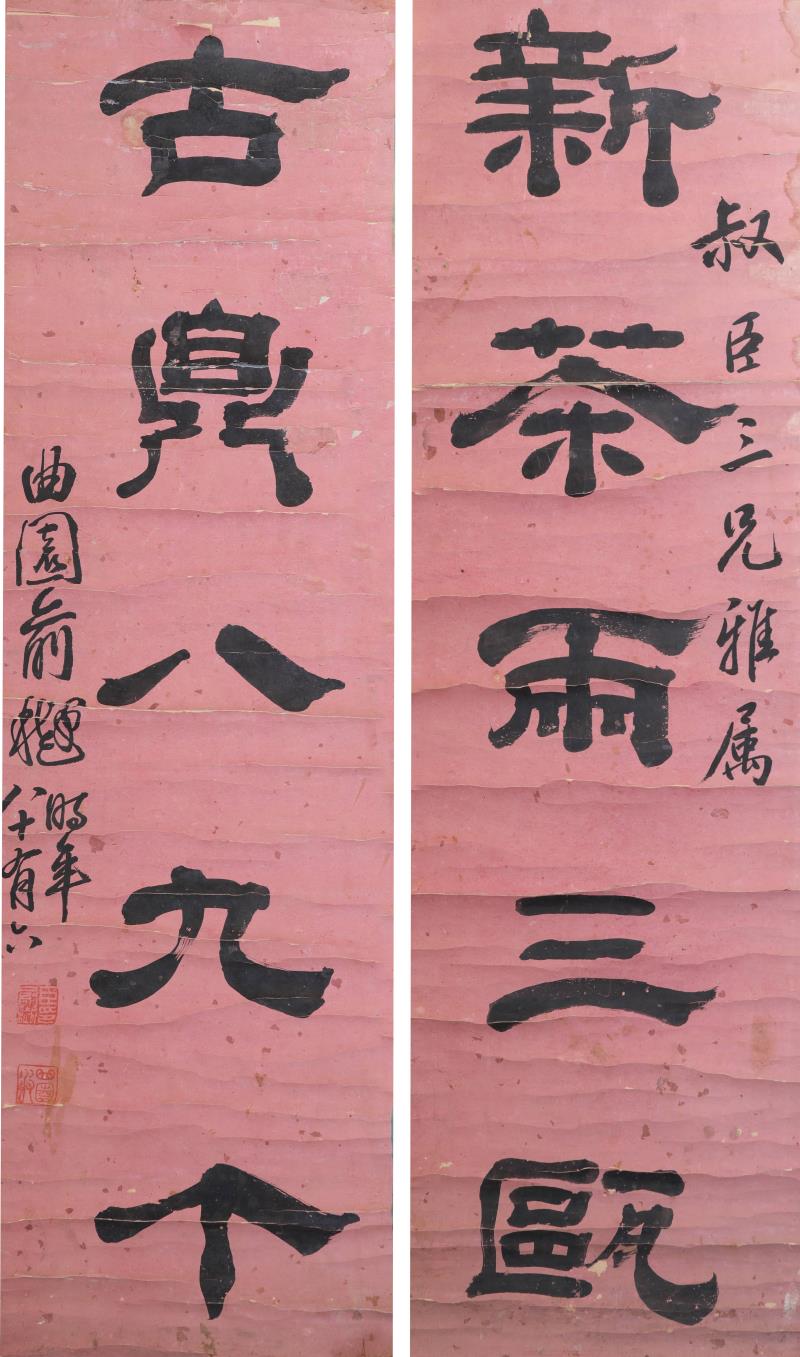 叔臣三兄雅属
新茶兩三甌
古鼎八九个
曲園俞樾時年
八十有六